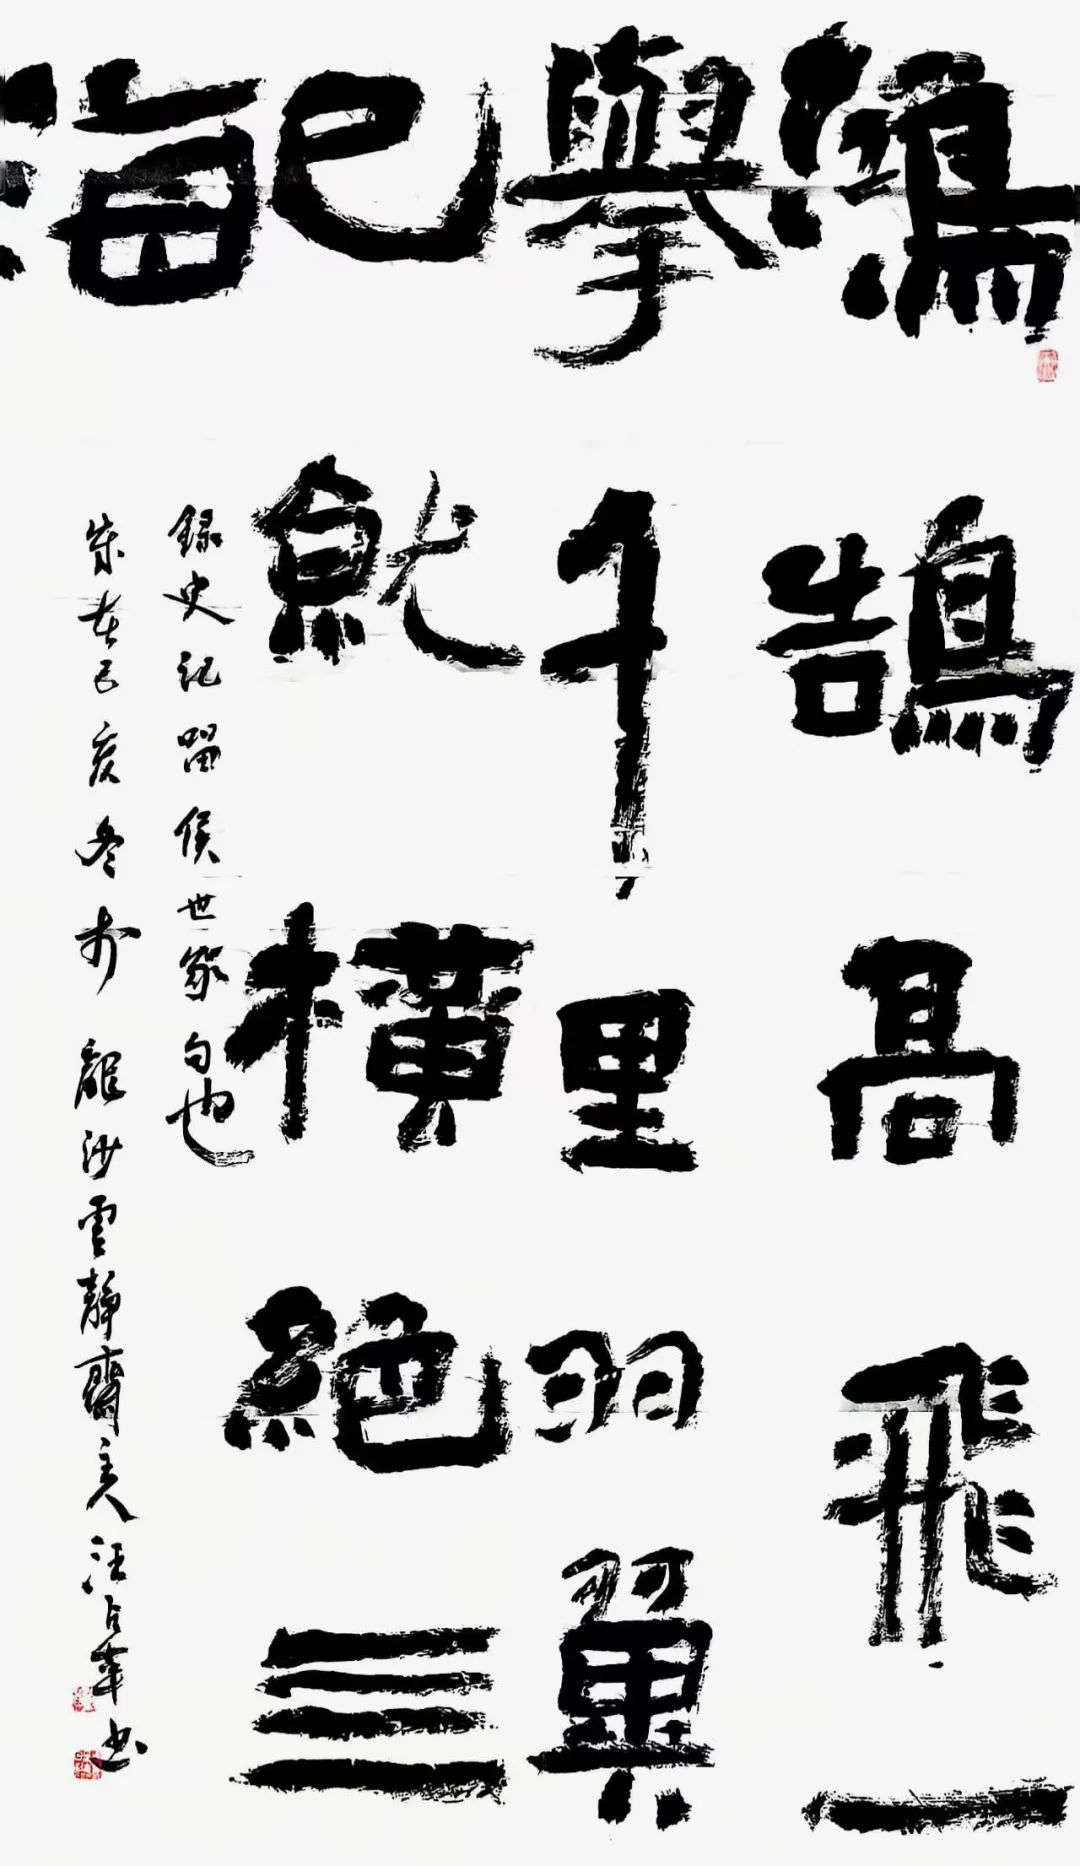 鴻鵠高飛一
擧千里羽翼
已就橫絕亖
海
録史記留侯世家句也
歲在己亥冬於龍沙雲靜齋主人汪占革書